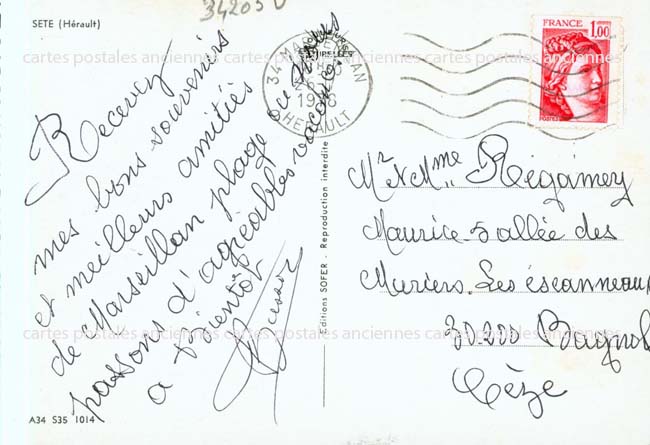 34203 U
SETE (Hérault)
Recevez
mes bons souvenirs
et meilleurs amitiés
de Marseillan plage ou nous
passons d'agréables vacances
a bientôt
34 MARSEILLAN
1978
HERAULT
FRANCE
1,00
POSTES
Editions SOFER - Reproduction interdite
Mr et Mme Régamey
Maurice 5 allée des
Muriers. Les éscanneaux
30200 Bagnol
Cèze
A34 S35 1014
cartes postales anciennes cartes postales anciennes cartes postales anciennes
cartes postales anciennes cartes postales anciennes cartes postales anciennes
cartes postales anciennes cartes postales anciennes cartes postales anciennes